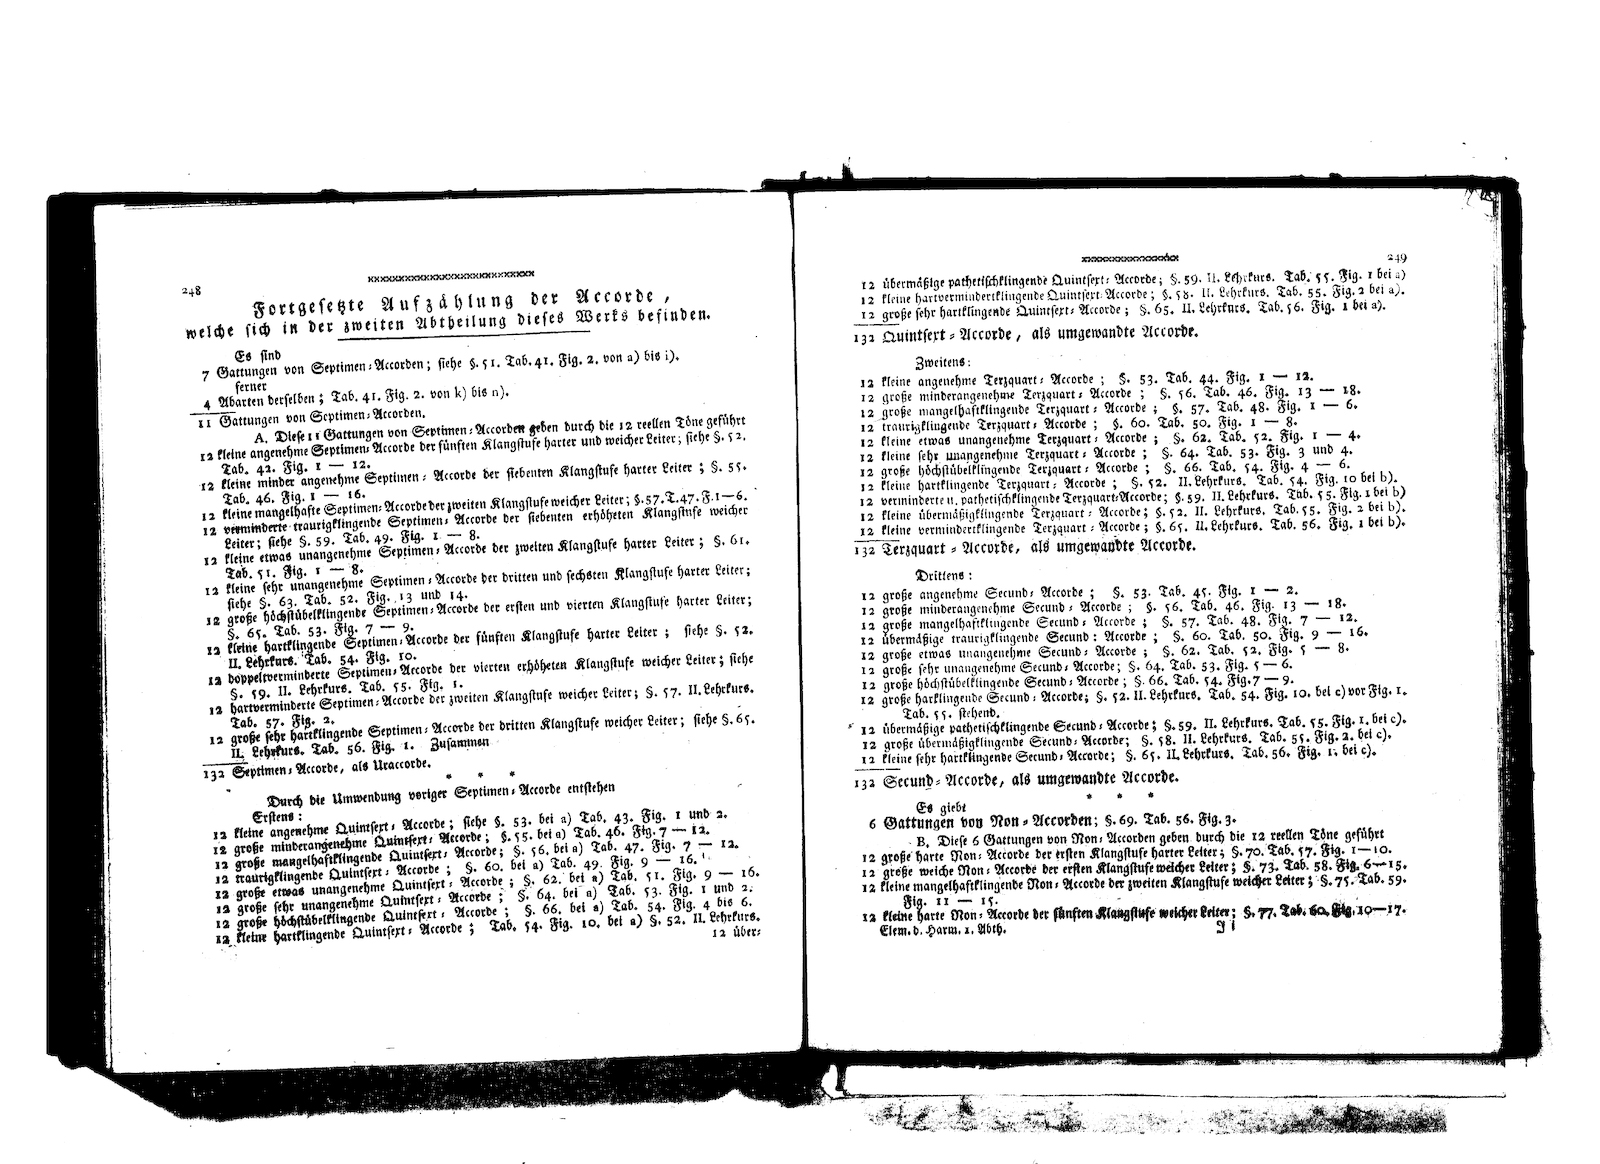 248
Fortgesetzte Aufzählung der Accorde,
welche sich in der zweiten Abtheilung dieses Werks befinden.
Es sind
7 Gattungen von Septimen-Accorden; siehe §. 51. Tab. 41. Fig. 2. von a) bis i).
ferner
4 Abarten derselben; Tab. 41. Fig. 2. von k) bis n).
11 Gattungen von Septimen-Accorden.
A. Diese 11 Gattungen von Septimen-Accorden geben durch die 12 reellen Töne geführt
12 kleine angenehme Septimen-Accorde der fünften Klangstufe harter und weicher Leiter; siehe §. 52.
Tab. 42. Fig. 1 — 12.
12 kleine minder angenehme Septimen-Accorde der siebenten Klangstufe harter Leiter; §. 55.
Tab. 46. Fig. 1 — 16.
12 kleine mangelhafte Septimen-Accorde der zweiten Klangstufe weicher Leiter; §. 57. T. 47. F. 1—6.
12 verminderte traurigklingende Septimen-Accorde der siebenten erhöheten Klangstufe weicher
Leiter; siehe §. 59. Tab. 49. Fig. 1 — 8.
12 kleine etwas unangenehme Septimen-Accorde der zweiten Klangstufe harter Leiter; §. 61.
Tab. 51. Fig. 1 — 8.
12 kleine sehr unangenehme Septimen-Accorde der dritten und sechsten Klangstufe harter Leiter;
siehe §. 63. Tab. 52. Fig. 13 und 14.
12 große höchstübelklingende Septimen-Accorde der ersten und vierten Klangstufe harter Leiter;
§. 65. Tab. 53. Fig. 7 — 9.
12 kleine hartklingende Septimen-Accorde der fünften Klangstufe harter Leiter; siehe §. 52.
II. Lehrkurs. Tab. 54. Fig. 10.
12 doppeltverminderte Septimen-Accorde der vierten erhöheten Klangstufe weicher Leiter; siehe
§. 59. II. Lehrkurs. Tab. 55. Fig. 1.
12 hartverminderte Septimen-Accorde der zweiten Klangstufe weicher Leiter; §. 57. II. Lehrkurs.
Tab. 57. Fig. 2.
12 große sehr hartklingende Septimen-Accorde der dritten Klangstufe weicher Leiter; siehe §. 65.
II. Lehrkurs. Tab. 56. Fig. 1. Zusammen
132 Septimen-Accorde, als Uraccorde.
* * *
Durch die Umwendung voriger Septimen-Accorde entstehen
Erstens:
12 kleine angenehme Quintsext-Accorde; siehe §. 53. bei a) Tab. 43. Fig. 1 und 2.
12 große minderangenehme Quintsext-Accorde; §. 55. bei a) Tab. 46. Fig. 7 — 12.
12 große mangelhaftklingende Quintsext-Accorde; §. 56. bei a) Tab. 47. Fig. 7 — 12.
12 traurigklingende Quintsext-Accorde; §. 60. bei a) Tab. 49. Fig. 9 — 16.
12 große etwas unangenehme Quintsext-Accorde; §. 62. bei a) Tab. 51. Fig. 9 — 16.
12 große sehr unangenehme Quintsext-Accorde; §. 64. bei a) Tab. 53. Fig. 1 und 2.
12 große höchstübelklingende Quintsext-Accorde; §. 66. bei a) Tab. 54. Fig. 4 bis 6.
12 kleine hartklingende Quintsext-Accorde; Tab. 54. Fig. 10. bei a) §. 52. II. Lehrkurs.
12 über-
249
12 übermäßige pathetischklingende Quintsext-Accorde; §. 59. II. Lehrkurs. Tab. 55. Fig. 1 bei a)
12 kleine hartvermindertklingende Quintsext-Accorde; §. 58. II. Lehrkurs. Tab. 55. Fig. 2 bei a).
12 große sehr hartklingende Quintsext-Accorde; §. 65. II. Lehrkurs. Tab. 56. Fig. 1 bei a).
132 Quintsext-Accorde, als umgewandte Accorde.
Zweitens:
12 kleine angenehme Terzquart-Accorde; §. 53. Tab. 44. Fig. 1 — 12.
12 große minderangenehme Terzquart-Accorde; §. 56. Tab. 46. Fig. 13 — 18.
12 große mangelhaftklingende Terzquart-Accorde; §. 57. Tab. 48. Fig. 1 — 6.
12 traurigklingende Terzquart-Accorde; §. 60. Tab. 50. Fig. 1 — 8.
12 kleine etwas unangenehme Terzquart-Accorde; §. 62. Tab. 52. Fig. 1 — 4.
12 kleine sehr unangenehme Terzquart-Accorde; §. 64. Tab. 53. Fig. 3 und 4.
12 große höchstübelklingende Terzquart-Accorde; §. 66. Tab. 54. Fig. 4 — 6.
12 kleine hartklingende Terzquart-Accorde; §. 52. II. Lehrkurs. Tab. 54. Fig. 10 bei b).
12 verminderte u. pathetischklingende Terzquart-Accorde; §. 59. II. Lehrkurs. Tab. 55. Fig. 1 bei b)
12 kleine übermäßigklingende Terzquart-Accorde; §. 52. II. Lehrkurs. Tab. 55. Fig. 2 bei b).
12 kleine vermindertklingende Terzquart-Accorde; §. 65. II. Lehrkurs. Tab. 56. Fig. 1 bei b).
132 Terzquart-Accorde, als umgewandte Accorde.
Drittens:
12 große angenehme Secund-Accorde; §. 53. Tab. 45. Fig. 1 — 2.
12 große minderangenehme Secund-Accorde; §. 56. Tab. 46. Fig. 13 — 18.
12 große mangelhaftklingende Secund-Accorde; §. 57. Tab. 48. Fig. 7 — 12.
12 übermäßige traurigklingende Secund-Accorde; §. 60. Tab. 50. Fig. 9 — 16.
12 große etwas unangenehme Secund-Accorde; §. 62. Tab. 52. Fig. 5 — 8.
12 große sehr unangenehme Secund-Accorde; §. 64. Tab. 53. Fig. 5 — 6.
12 große höchstübelklingende Secund-Accorde; §. 66. Tab. 54. Fig. 7 — 9.
12 große harklingende Secund-Accorde; §. 52. II. Lehrkurs. Tab. 54. Fig. 10. bei c) vor Fig. 1.
Tab. 55. stehend.
12 übermäßige pathetischklingende Secund-Accorde; §. 59. II. Lehrkurs. Tab. 55. Fig. 1. bei c).
12 große übermäßigklingende Secund-Accorde; §. 58. II. Lehrkurs. Tab. 55. Fig. 2. bei c).
12 kleine sehr hartklingende Secund-Accorde; §. 65. II. Lehrkurs. Tab. 56. Fig. 1. bei c).
132 Secund-Accorde, als umgewandte Accorde.
* * *
Es giebt
6 Gattungen von Non-Accorden; §. 69. Tab. 56. Fig. 3.
B. Diese 6 Gattungen von Non-Accorden geben durch die 12 reellen Töne geführt
12 große harte Non-Accorde der ersten Klangstufe harter Leiter; §. 70. Tab. 57. Fig. 1—10.
12 große weiche Non-Accorde der ersten Klangstufe weicher Leiter; §. 73. Tab. 58. Fig. 6—15.
12 kleine mangelhaftklingende Non-Accorde der zweiten Klangstufe weicher Leiter; §. 75. Tab. 59.
Fig. 11 — 15.
12 kleine harte Non-Accorde der fünften Klangstufe weicher Leiter; §. 77. Tab. 60. Fig. 10—17.
Elem. d. Harm. 1. Abth.